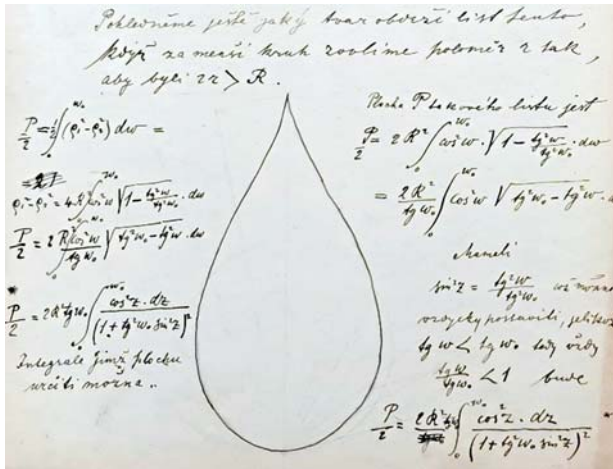 Pohledněme ještě jaký tvar obdrží list tento,
když za menší kruh zvolíme poloměr r tak,
aby byli 2r > R.
P/2 = 1/2 ∫₀^w₀ (ρ₁² - ρ₂²) dw =
ρ₁² - ρ₂² = 4R² cos²w √(1 - tg²w/tg²w₀) · dw
P/2 = 2 ∫₀^w₀ R² cos²w/tg w₀ √(tg²w₀ - tg²w · dw
P/2 = 2R² tg w₀ ∫₀^w₀ cos²z · dz/(1 + tg²w₀ sin²z)²
Integrale jimž plochu
určiti možna..
Plocha P takového listu jest
P/2 = 2R² ∫₀^w₀ cos²w · √(1 - tg²w/tg²w₀) · dw
= 2R²/tg w₀ ∫₀^w₀ cos²w √(tg²w₀ - tg²w · d
sin²z = tg²w/tg²w₀ což možna
vždycky postaviti, jeliko
tg w < tg w₀ tedy vždy
tg w/tg w₀ < 1 bude
P/2 = 2R² tg ∫₀^w₀ cos²z · dz/(1 + tg²w₀ sin²z)²